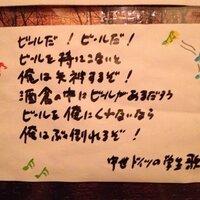 ビールだ！ビールだ！
ビールを持にこないと
俺は失神するぞ！
酒倉の中にビールがあるだろう
ビールを俺にくれないなら
俺はぶっ倒れるぞ！
中世ドイツの学生歌